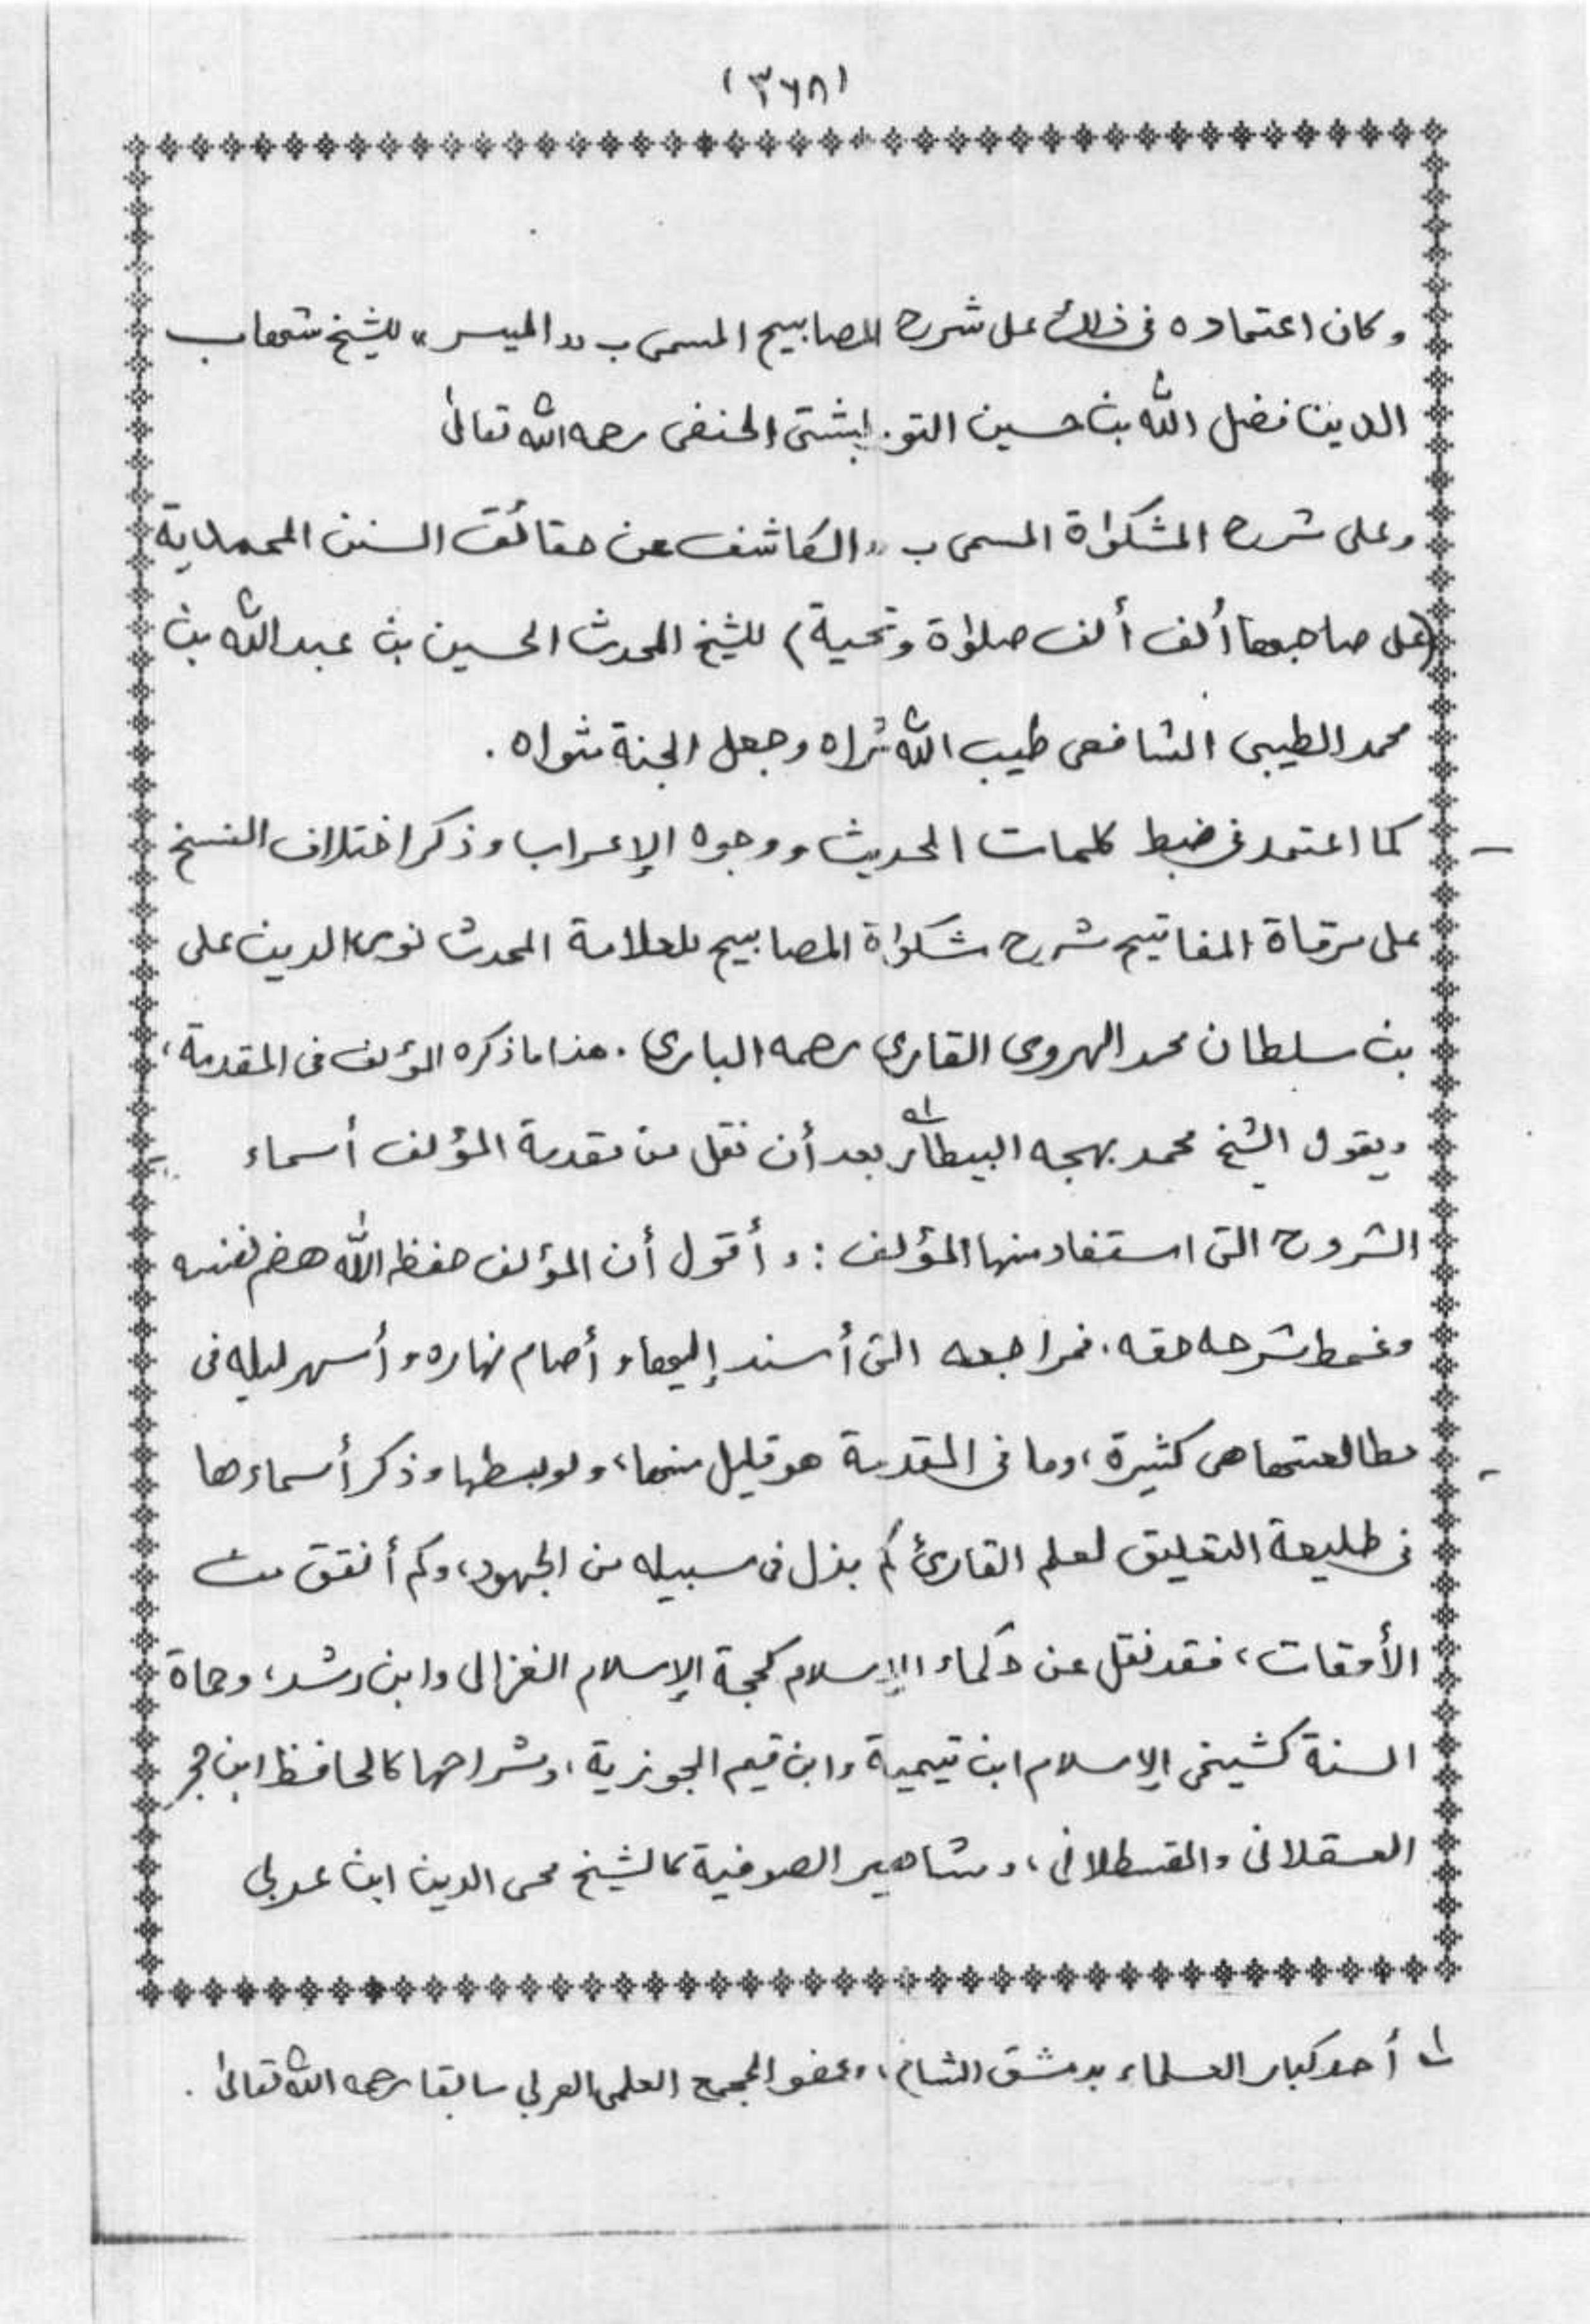 (٣٦٨)
وكان اعتماده فى ذلك على شرح المصابيح المسمى ب «الميسر» للشيخ شهاب
الدين فضل الله بن حسين التوربشتى الحنفى رحمه الله تعالىٰ
وعلى شرح المشكوٰة المسمى ب «الكاشف عن حقائق السنن المحمدية
(على صاحبها ألف ألف صلوٰة وتحية) للشيخ المحدث الحسين بن عبد الله بن
محمد الطيبى الشافعى طيب الله ثراه وجعل الجنة مثواه .
كما اعتمد فى ضبط كلمات الحديث ووجوه الإعراب وذكر اختلاف النسخ
على مرقاة المفاتيح شرح مشكوٰة المصابيح للعلامة المحدث نور الدين على
بن سلطان محمد الهروى القارى رحمه البارى . هذا ما ذكره المؤلف فى المقدمة،
ويقول الشيخ محمد بهجه البيطار (١) بعد أن نقل من مقدمة المؤلف أسماء
الشروح التى استفاد منها المؤلف : و أقول أن المؤلف حفظه الله هضم نفسه
وغمط شرحه حقه، فمراجعه التى أسند إليها و أصام نهاره و أسهر ليله فى
مطالعتها هى كثيرة، وما فى المقدمة هو قليل منها، ولو بسطها وذكر أسماءها
فى طليعة التعليق لعلم القارئ كم بذل فى سبيله من الجهود، وكم أنفق من
الأوقات، فقد نقل عن حكماء الإسلام كحجة الإسلام الغزالى وابن رشد، وحماة
السنة كشيخى الإسلام ابن تيمية وابن قيم الجوزية، وشراحها كالحافظ ابن حجر
العسقلانى والقسطلانى، ومشاهير الصوفية كالشيخ محى الدين ابن عربى
(١) أحد كبار العلماء بدمشق الشام، وعضو المجمع العلمى العربى سابقا رحمه الله تعالىٰ .